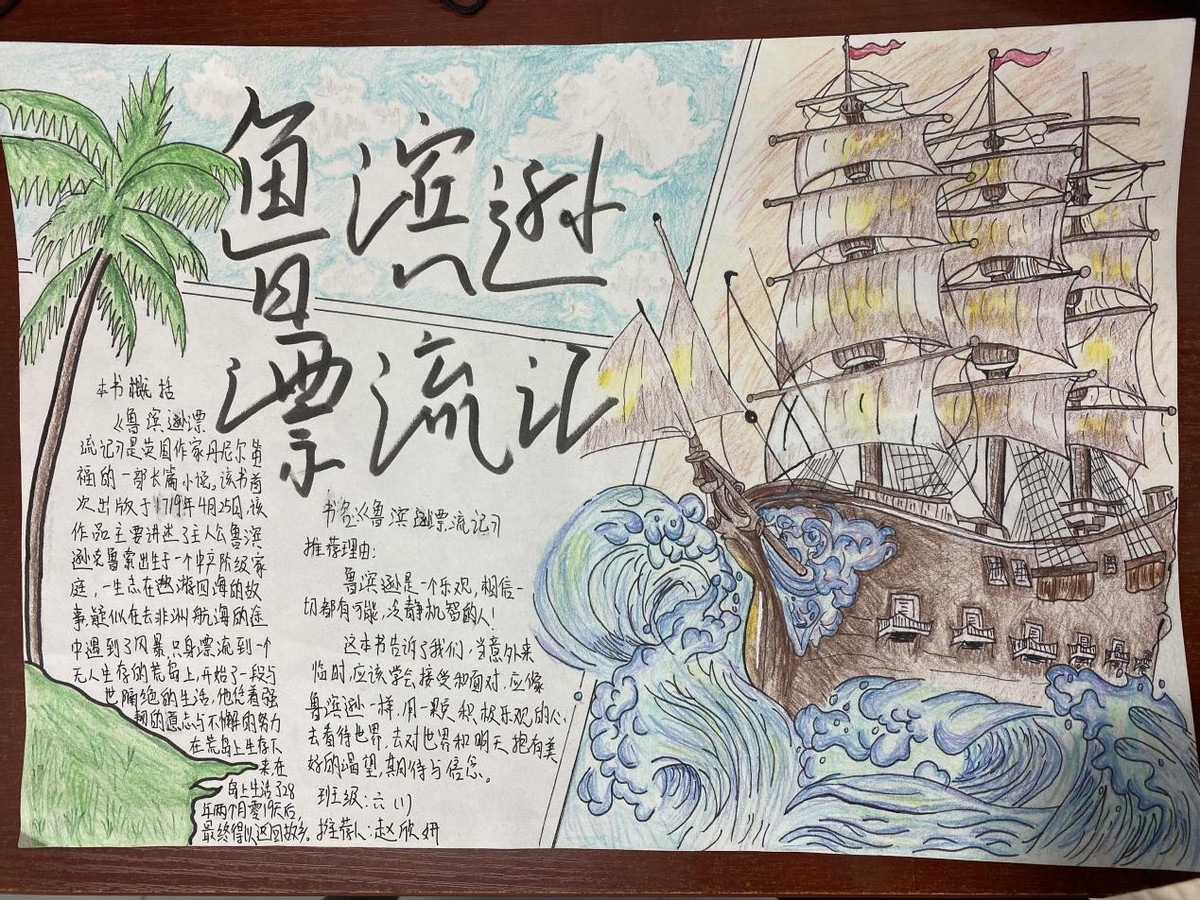 鲁滨逊
漂流记
本书概括
《鲁滨逊漂
流记》是英国作家丹尼尔笛
福的一部长篇小说。该书首
次出版于1719年4月25日，该
作品主要讲述了主人公鲁滨
逊克鲁索出生于一个中产阶级家
庭，一生志在遨游四海的故
事，疑似在去非洲航海的途
中遇到了风暴，只身漂流到一个
无人生存的荒岛上，开始了一段与
世隔绝的生活，他凭着强
韧的意志与不懈的努力
在荒岛上生存下
来在
岛上生活了28
年两个月零19天后，
最终得以返回故乡。
书名：《鲁滨逊漂流记》
推荐理由：
鲁滨逊是一个乐观，相信一
切都有可能，冷静机智的人！
这本书告诉了我们，当意外来
临时，应该学会接受和面对，应像
鲁滨逊一样，用一颗积极乐观的心，
去看待世界，去对世界和明天抱有美
好的渴望，期待与信念。
班级：六（1）
推荐人：赵欣妍